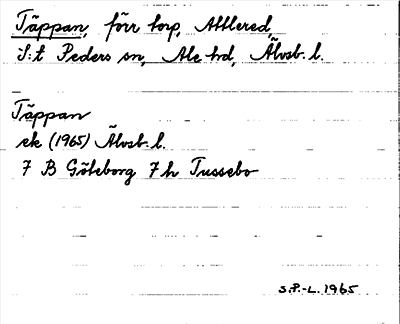 Täppan, förr torp, Attlered,
S:t Peders sn, Ale hd, Älvsb. l.
Täppan
ek (1965) Älvsb. l.
7 B Göteborg 7 h Tussebo
S.P.-L. 1965